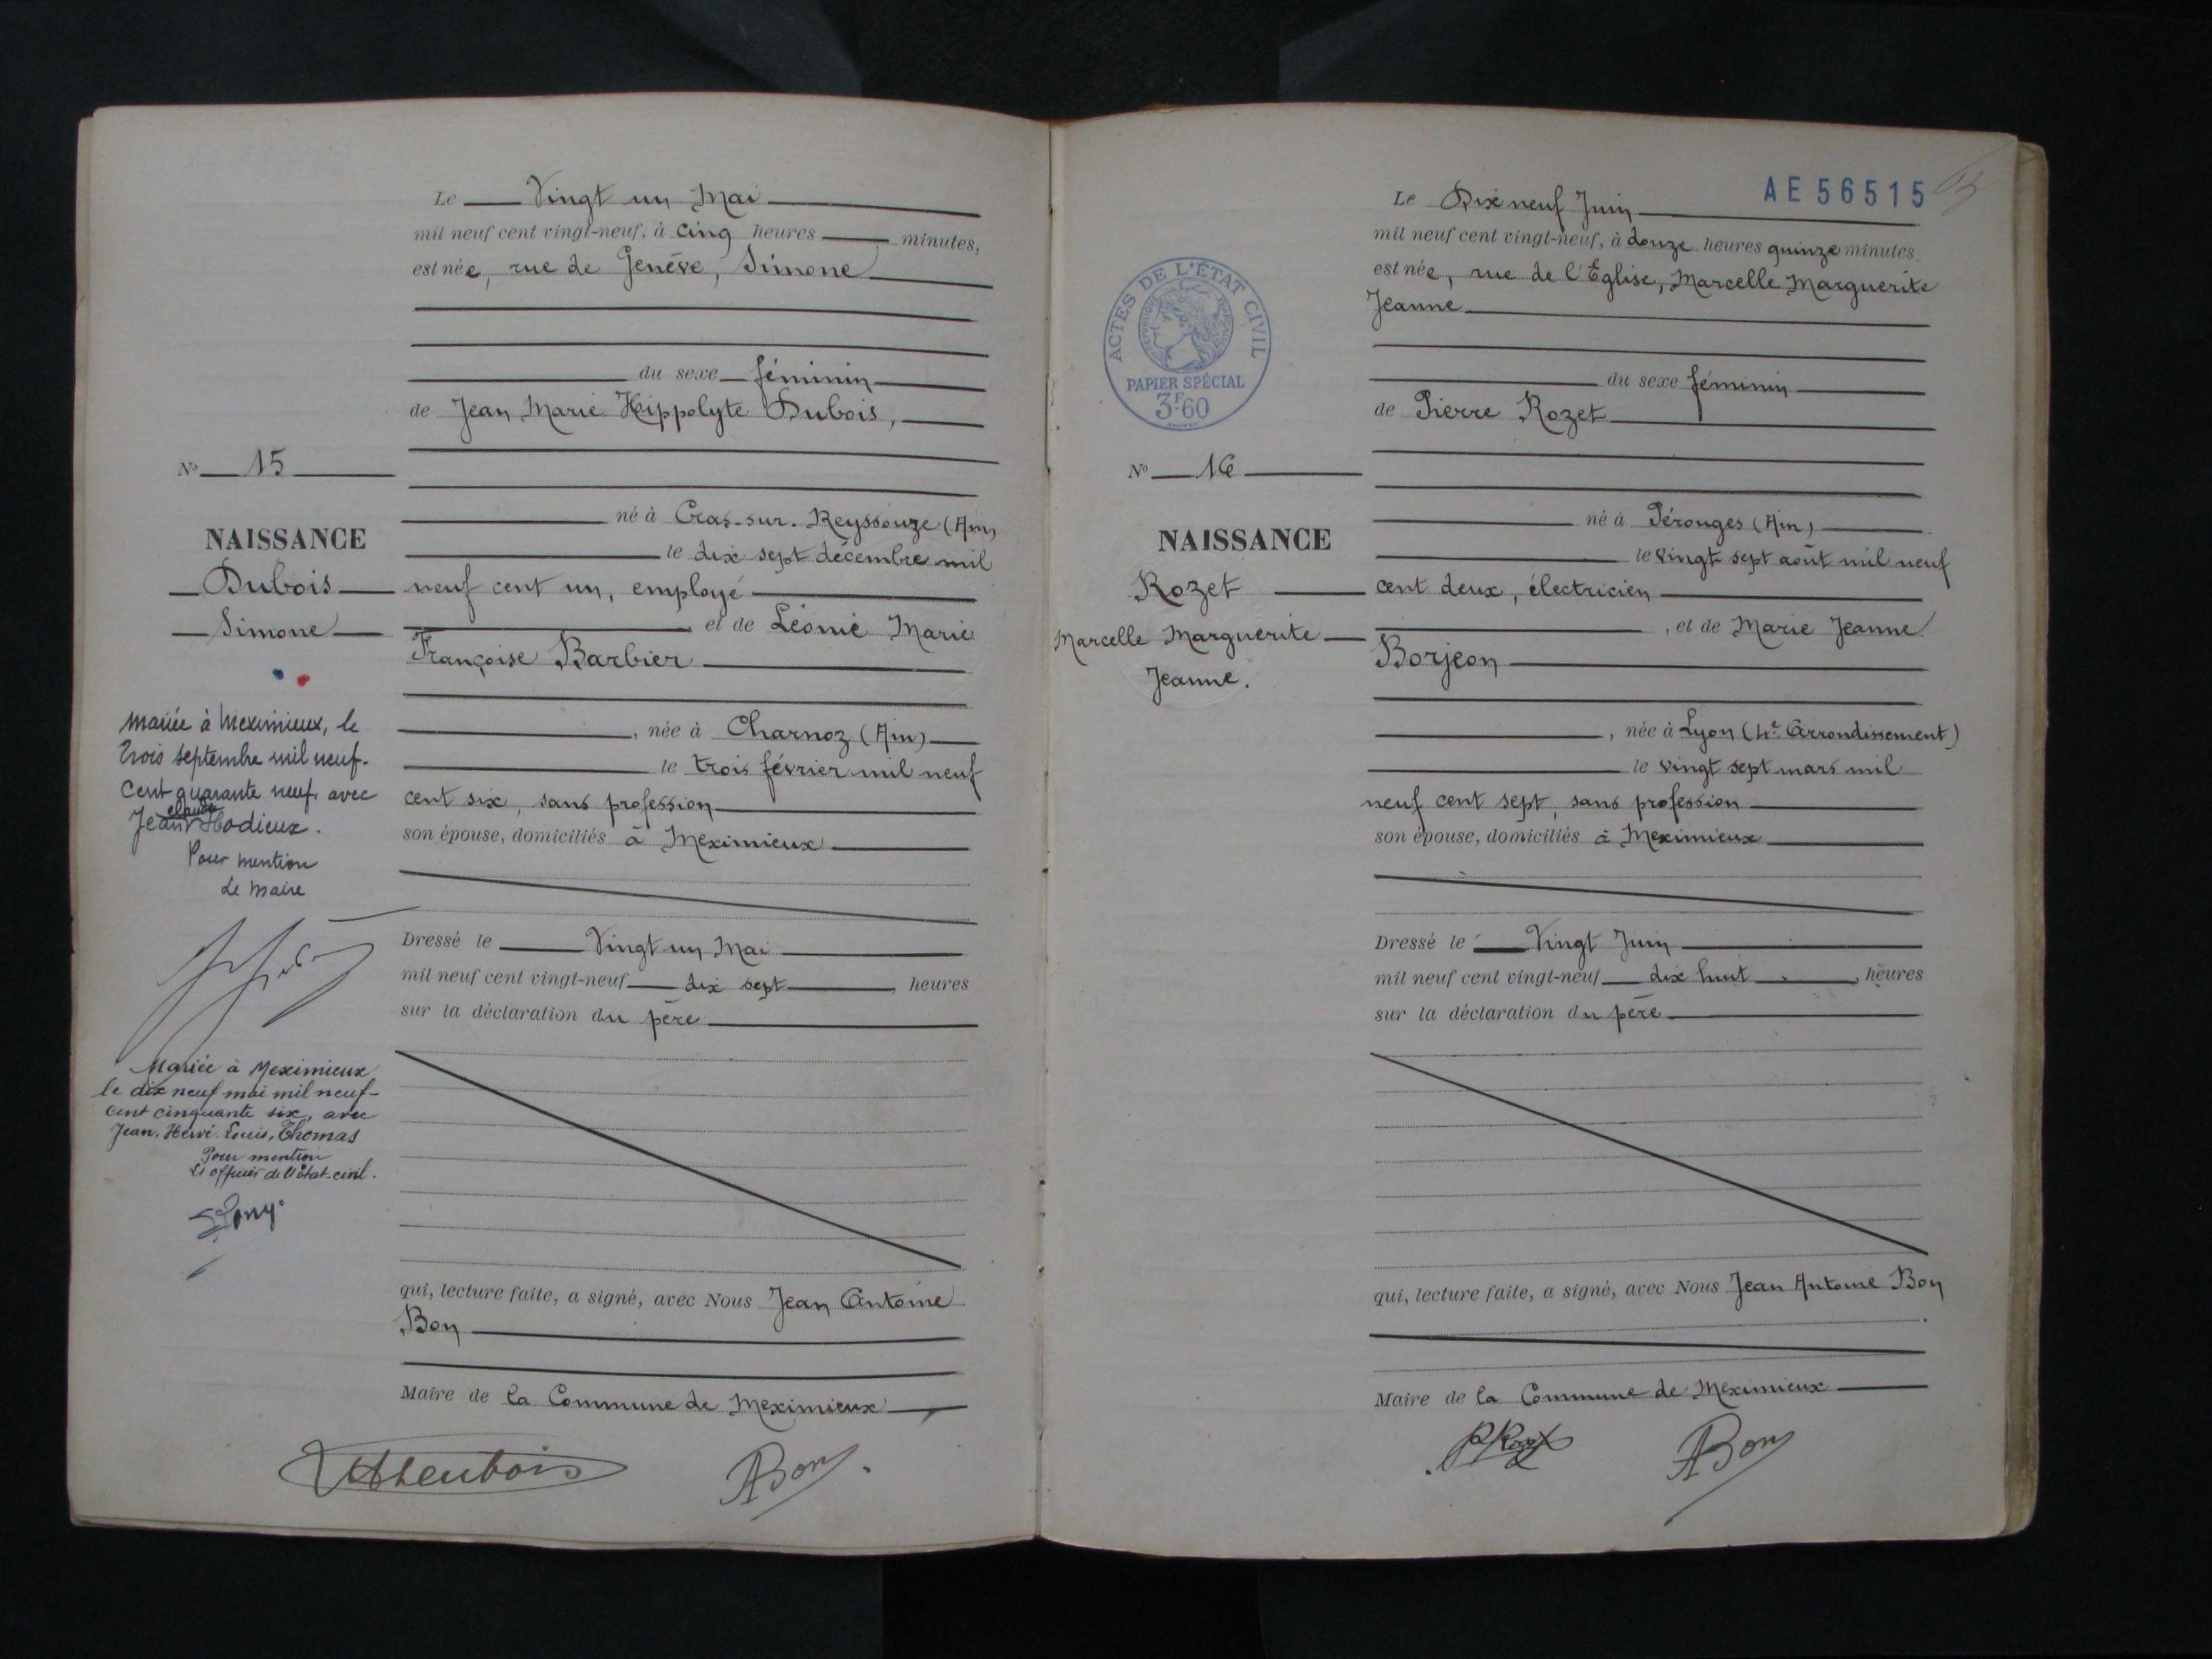 Le Vingt un Mai
mil neuf cent vingt-neuf, à cinq heures minutes,
est née, rue de Genève, Simone
du sexe féminin
de Jean Marie Hippolyte Dubois,
né à Cras-sur-Reyssouze (Ain)
le dix sept décembre mil
neuf cent un, employé
et de Léonie Marie
Françoise Barbier
, née à Charnoz (Ain)
le trois février mil neuf
cent six, sans profession
son épouse, domiciliés à Meximieux
Dressé le Vingt un Mai
mil neuf cent vingt-neuf dix sept heures
sur la déclaration du père
qui, lecture faite, a signé, avec Nous Jean Antoine
Bon
Maire de la Commune de Meximieux
ABon
No 15
NAISSANCE
Dubois
Simone
Mariée à Meximieux, le
trois septembre mil neuf-
cent quarante neuf, avec
claude
Jean Hodieux.
Pour mention
Le Maire
Mariée à Meximieux
le dix neuf mai mil neuf-
cent cinquante six, avec
Jean. Hervé. Louis. Thomas
Pour mention
L'officier de l'état-civil.
AE56515
Le Dix neuf Juin
mil neuf cent vingt-neuf, à douze heures quinze minutes
est née, rue de l'Église, Marcelle Marguerite
Jeanne
du sexe féminin
de Pierre Rozet
né à Pérouges (Ain)
le vingt sept août mil neuf
cent deux, électricien
, et de Marie Jeanne
Borjeon
, née à Lyon (4e Arrondissement)
le vingt sept mars mil
neuf cent sept, sans profession
son épouse, domiciliés à Meximieux
Dressé le Vingt Juin
mil neuf cent vingt-neuf dix huit , heures
sur la déclaration du père
qui, lecture faite, a signé, avec Nous Jean Antoine Bon
Maire de la Commune de Meximieux
ABon
ACTES DE L'ÉTAT CIVIL
RÉPUBLIQUE FRANÇAISE
PAPIER SPÉCIAL
3F60
No 16
NAISSANCE
Rozet
Marcelle Marguerite
Jeanne.